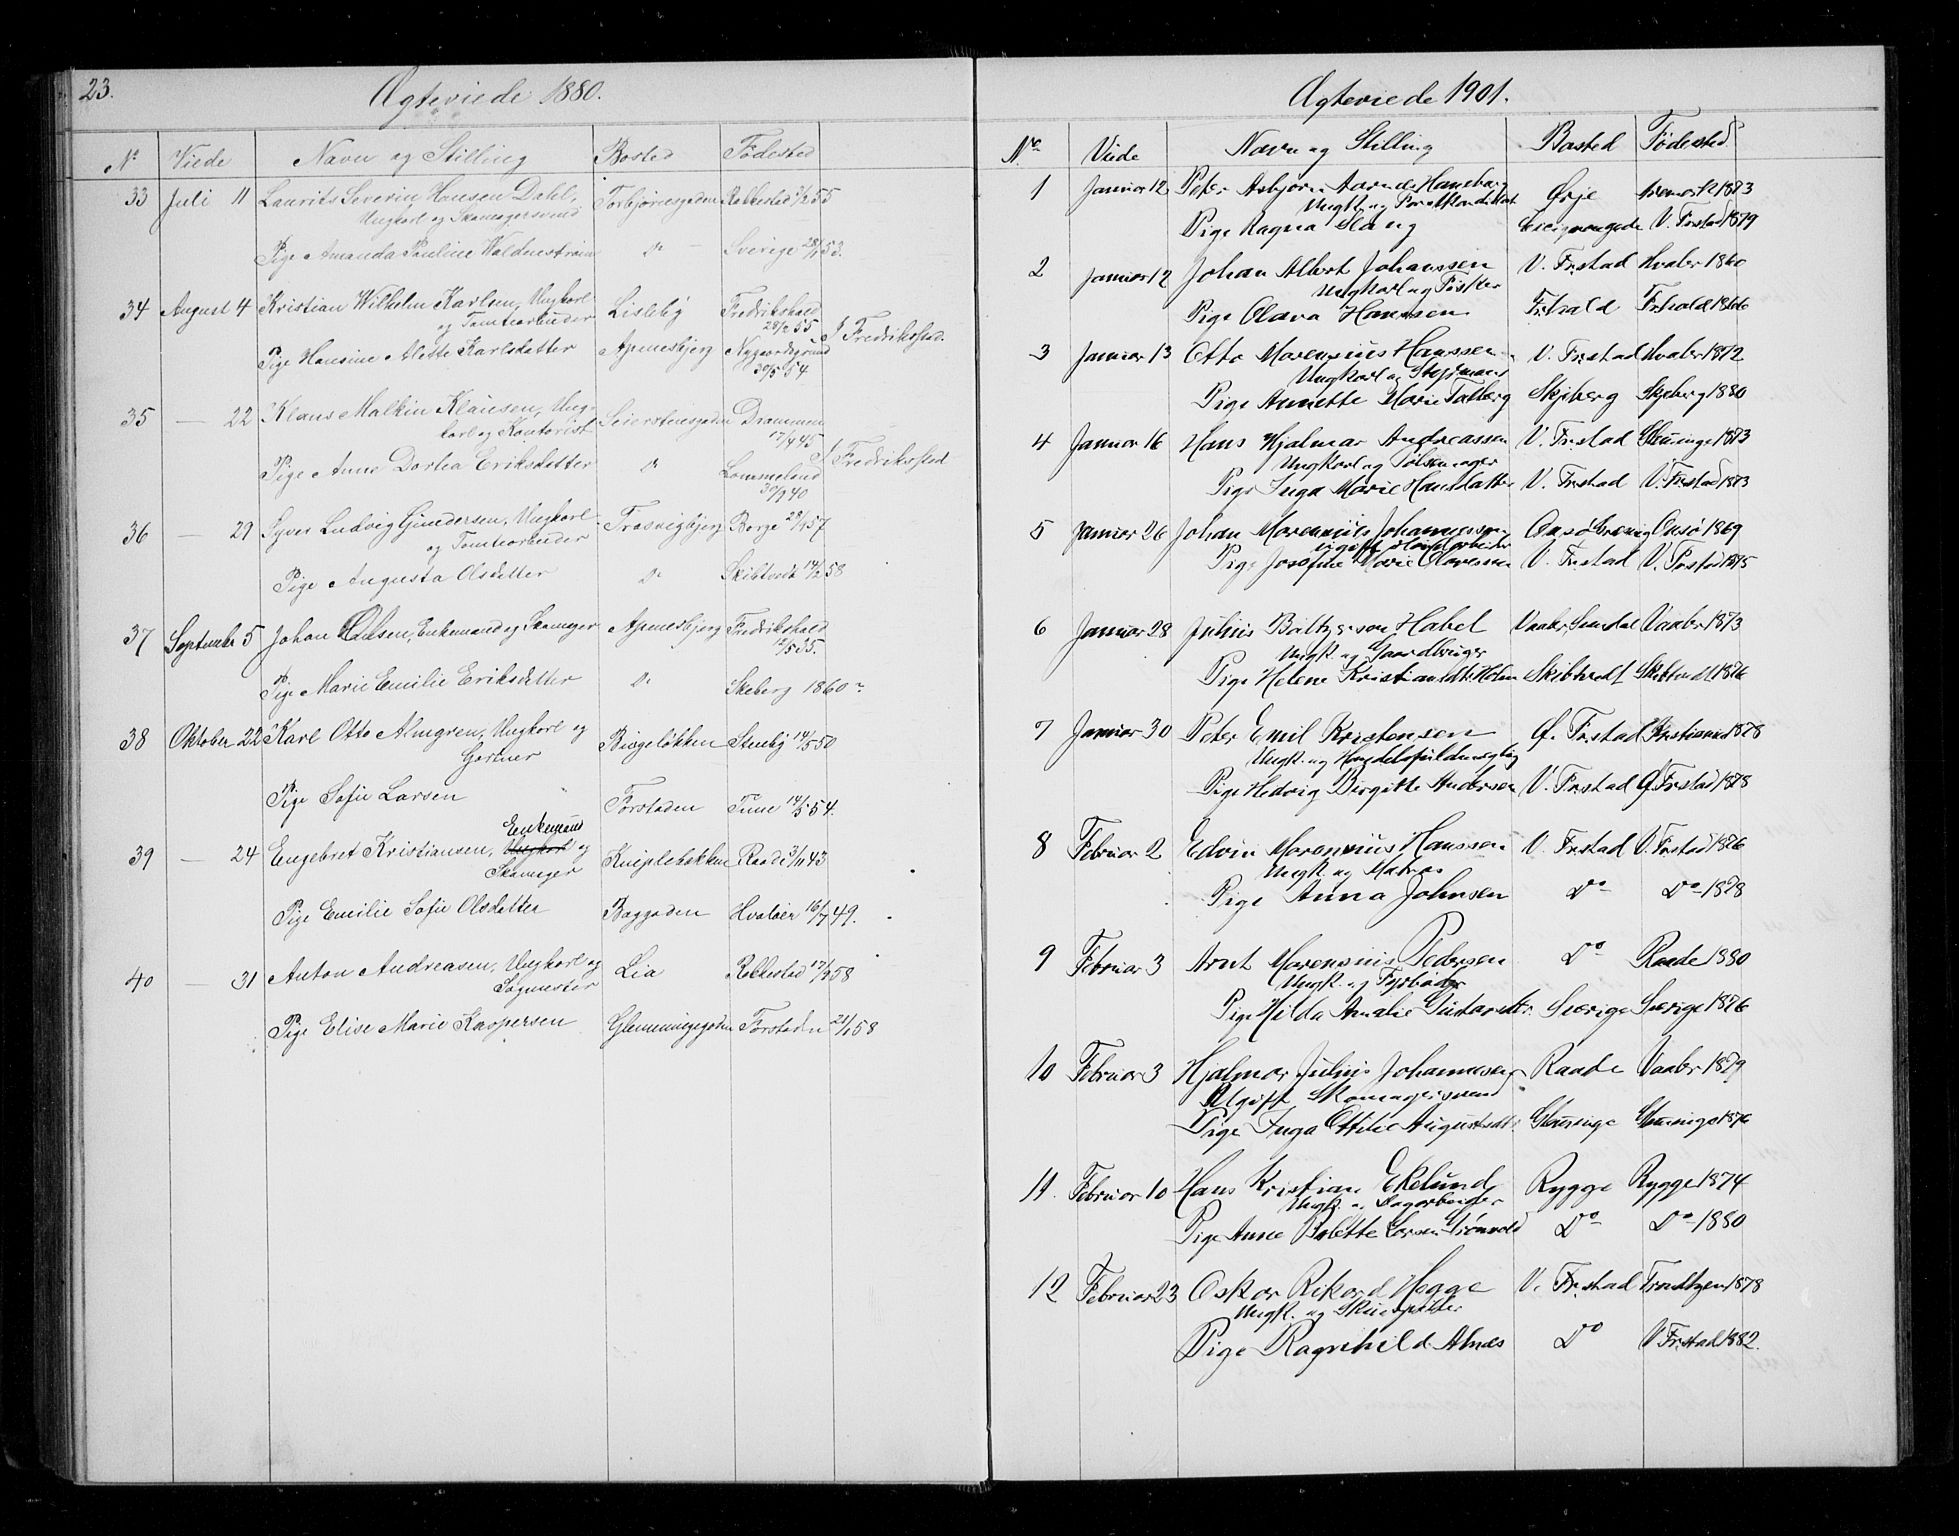 23.
Ægteviede 1880.
Nº Viede Navn og Stilling Bosted Födested
33 Juli 11 Laurits Severin Hansen Dahl, Torbjörnsgaden Rakkestad 55
Ungkarl og Skomagersvend
Pige Amanda Pauline Waldenström Dº — Sverige 53.
34 August 4 Kristian Wilhelm Karlsen, Ungkarl Lisleby Fredrikshald
og Tomtearbeider 28/2 55
Pige Hansine Alette Karlsdatter Apenesbjerg Nygaardsgrund J Fredriksstad.
30/5 54
35 — 22 Klaus Malkin Klausen, Ung- Seierstensgaden Drammen
karl og Kontorist 17/4 45
Pige Anne Dortea Eriksdatter Dº Lommeland J Fredriksstad
30/9 40
36 — 29 Syver Ludvig Gundersen, Ungkarl Trosvigbjerg Borge 57
og Tomtearbeider
Pige Augusta Olsdatter Dº Skibtvedt 14/2 58
37 September 5 Johan Olsen, Enkemand og Skomager Apenesbjerg Fredrikshald
12/5 35.
Pige Marie Emilie Eriksdatter Dº Skeberg 1860
38 Oktober 22 Karl Otto Almgren, Ungkarl og Bingelökken Stenby 14/5 50
Gartner
Pige Sofie Larsen Forstaden Tune 14/5 54.
Enkemand
39 — 24 Engebret Kristiansen, Ungkarl og Kniplebakken Raade 3/11 43
Skomager
Pige Emilie Sofie Olsdatter Baggaden Hvaløer 16/7 49.
40 — 31 Anton Andreasen, Ungkarl og Lia Rakkestad 58
Sagmester
Pige Elise Marie Kaspersen Glemmingegaden Forstaden 58
Ægteviede 1901.
Nº Viede Navn og Stilling Bosted Födested
1 Januar 12 Peter Asbjørn Aarnes Haneborg Ørje Aremark 1873
Ungk. og Forstkandidat
Pige Ragna Stang V. Frstad 1879
2 Januar 12 Johan Albert Johanssen V. Frstad Hvaler 1860
Ungkarl og Fisker
Pige Olava Hanssen Frhald Frhald 1866
3 Januar 13 Otto Marensius Hanssen V. Frstad Hvaler 1872
Ungkarl og Styrmand
Pige Annette Marie Talberg Skjeberg Skjeberg 1880
4 Januar 16 Hans Hjalmar Andreassen V. Frstad Glemminge 1873
Ungkarl og Pølsemager
Pige Inga Marie Hansdatter V. Frstad V. Frstad 1873
5 Januar 26 Johan Marennius Johannessen Onsø Onsø 1869
ugift Havnearbeider
Pige Josefine Marie Olavessen V. Frstad V. Frstad 1875
6 Januar 28 Julius Baltzersen Habel Vaaler, Semdal Vaaler 1873
Ungk. og Gaardbruger
Pige Helene Kristiansdtr Holm Skibtvedt Skibtvedt 1876
7 Januar 30 Peter Emil Kristensen Ø. Frstad Kristiansund 1878
Ungk. og Handelsfuldmægtig
Pige Hedvig Birgitte Andersen V. Frstad Ø. Frstad 1878
8 Februar 2 Edvin Marennius Hanssen V. Frstad V. Frstad 1876
Ungk. og Matros
Pige Anna Johnsen Dº Dº 1878
9 Februar 3 Arnt Marensius Pedersen Dº Raade 1880
Ungk. og Fyrbøder
Pige Hilda Amalie Gustavsdtr. Sverige Sverige 1876
10 Februar 3 Hjalmar Julius Johannesen Raade Vaaler 1879
Ugift Skomagersvend
Pige Inga Ottilie Augustsdtr. Glemminge Glemminge 1876
11. Februar 10 Hans Kristian Ekelund Rygge Rygge 1874
Ungk. og Dagarbeider
Pige Anne Bolette Larsen Grönvold Dº Dº 1880
12 Februar 23 Oskar Rikard Hegge V. Frstad Trondhjem 1878
Ungk. og Skuespiller
Pige Ragnhild Alnæs Dº V. Frstad 1882.